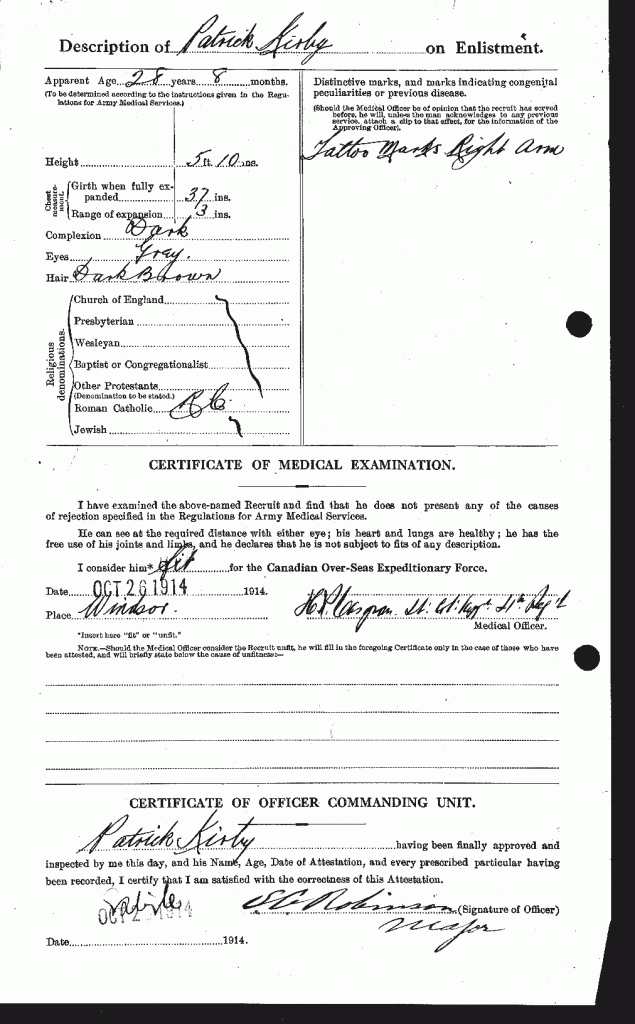 Description of Patrick Kirby on Enlistment.
Apparent Age 28 years 8 months.
(To be determined according to the instructions given in the Regulations for Army Medical Services.)
Height 5 ft 10 ins.
Chest measurement.
Girth when fully expanded 37 ins.
Range of expansion 3 ins.
Complexion Dark
Eyes Grey.
Hair Dark Brown
Religious denominations.
Church of England
Presbyterian
Wesleyan
Baptist or Congregationalist
Other Protestants
(Denomination to be stated.)
Roman Catholic RC
Jewish
Distinctive marks, and marks indicating congenital
peculiarities or previous disease.
(Should the Medical Officer be of opinion that the recruit has served
before, he will, unless the man acknowledges to any previous
service, attach a slip to that effect, for the information of the
Approving Officer).
Tattoo Marks Right Arm
CERTIFICATE OF MEDICAL EXAMINATION.
I have examined the above-named Recruit and find that he does not present any of the causes
of rejection specified in the Regulations for Army Medical Services.
He can see at the required distance with either eye; his heart and lungs are healthy; he has the
free use of his joints and limbs, and he declares that he is not subject to fits of any description.
I consider him* fit for the Canadian Over-Seas Expeditionary Force.
Date OCT 26 1914 1914.
Place Windsor.
Medical Officer.
*Insert here "fit" or "unfit."
NOTE.—Should the Medical Officer consider the Recruit unfit, he will fill in the foregoing Certificate only in the case of those who have
been attested, and will briefly state below the cause of unfitness:—
CERTIFICATE OF OFFICER COMMANDING UNIT.
Patrick Kirby having been finally approved and
inspected by me this day, and his Name, Age, Date of Attestation, and every prescribed particular having
been recorded, I certify that I am satisfied with the correctness of this Attestation.
Robinson (Signature of Officer)
Major
Date 1914.